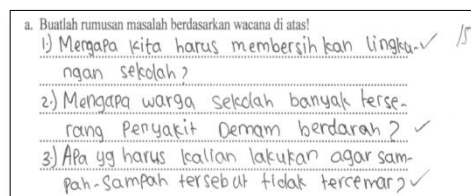 a. Buatlah rumusan masalah berdasarkan wacana di atas!
1.) Mengapa kita harus membersihkan lingku-
ngan sekolah?
2.) Mengapa warga sekolah banyak terse-
rang Penyakit Demam berdarah?
3.) Apa yg harus kalian lakukan agar sam-
pah-sampah tersebut tidak tercemar?
15